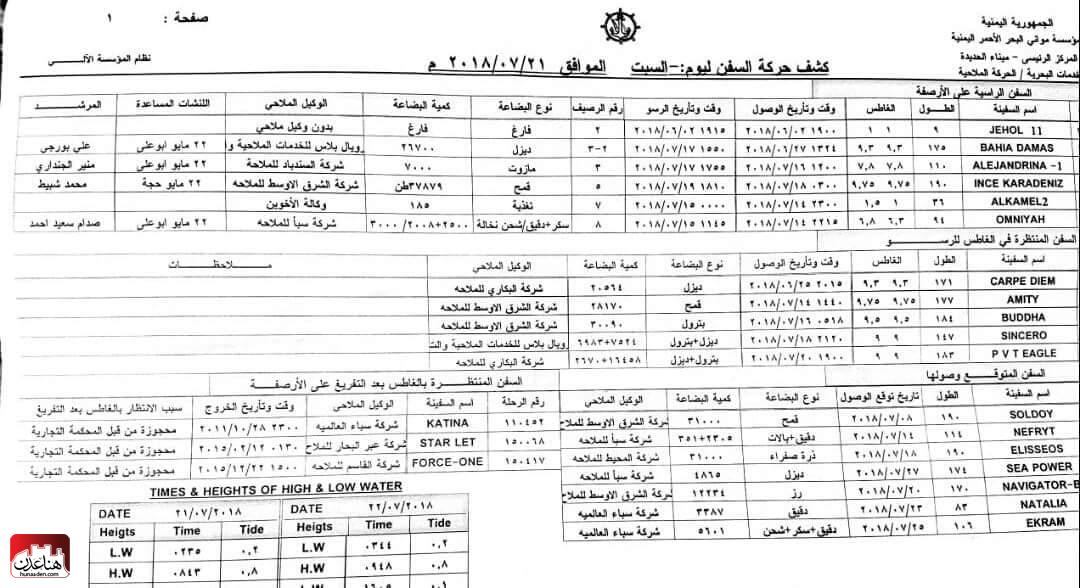 الجمهورية اليمنية
مؤسسة موانئ البحر الأحمر اليمنية
المركز الرئيسي - ميناء الحديدة
خدمات البحرية / الحركة الملاحية
صفحة : ١
نظام المؤسسة الآلـــي
كشف حركة السفن ليوم:- السبت الموافق ٢٠١٨/٠٧/٢١ م
السفن الراسية على الأرصفة
اسم السفينة الطـول الغاطس وقت وتأريخ الوصول وقت وتأريخ الرسو رقم الرصيف نوع البضاعة كمية البضاعة الوكيل الملاحي اللنشات المساعدة المرشد
JEHOL 11 ٩ ١ ١ ٢٠١٨/٠٦/٠٢ ١٩٠٠ ٢٠١٨/٠٦/٠٢ ١٩١٥ ٢ فارغ فارغ بدون وكيل ملاحي
BAHIA DAMAS ١٧٥ ٩,٣ ٩,٣ ٢٠١٨/٠٦/٢٧ ١٣٢٤ ٢٠١٨/٠٧/١٧ ١٥٥٠ ٢-٣ ديزل ٢٦٧٠٠ رويال بلاس للخدمات الملاحية وا ٢٢ مايو ابوعلى علي بورجي
ALEJANDRINA -1 ١١٠ ٧,٨ ٧,٨ ٢٠١٨/٠٧/١٦ ١٢٠٠ ٢٠١٨/٠٧/١٧ ١٧٥٥ ٣ مازوت ٧٠٠٠ شركة السندباد للملاحة ٢٢ مايو ابوعلى منير الجنداري
INCE KARADENIZ ١٩٠ ٩,٧٥ ٩,٧٥ ٢٠١٨/٠٧/١٨ ٠٣٠٠ ٢٠١٨/٠٧/١٩ ١٨١٠ ٥ قمح ٣٧٨٧٩طن شركة الشرق الاوسط للملاحه ٢٢ مايو حجة محمد شبيط
ALKAMEL2 ٣٦ ١ ١,٥ ٢٠١٨/٠٧/١٤ ٢٣٠٠ ٢٠١٨/٠٧/١٥ ٠٠٠٠ ٧ تغذية ١٨٥ وكالة الأخوين
OMNIYAH ٩٤ ٦,٣ ٦,٨ ٢٠١٨/٠٧/١٤ ٢٢١٥ ٢٠١٨/٠٧/١٥ ١١٤٥ ٨ سكر+دقيق/شحن نخالة ٢٥٠٠+٢٠٠٨/ ٣٠٠٠ شركة سبأ للملاحه ٢٢ مايو ابوعلى صدام سعيد احمد
السفن المنتظرة في الغاطس للرســـو
اسم السفينة الطول الغاطس وقت وتأريخ الوصول نوع البضاعة كمية البضاعة الوكيل الملاحي مـــلاحظـــات
CARPE DIEM ١٧١ ٩,٣ ٩,٣ ٢٠١٨/٠٦/٢٥ ٢٠١٥ ديزل ٢٠٥٦٤ شركة البكاري للملاحه
AMITY ١٧٧ ٩,٧٥ ٩,٧٥ ٢٠١٨/٠٧/١٤ ١٤٤٠ قمح ٢٨١٧٠ شركة الشرق الاوسط للملاحه
BUDDHA ١٨٤ ٩,٥ ٩,٥ ٢٠١٨/٠٧/١٦ ٠٥١٨ بترول ٣٠٠٩٠ شركة الشرق الاوسط للملاحه
SINCERO ١٤٧ ٩ ٩ ٢٠١٨/٠٧/١٨ ٢١٢٠ ديزل+بترول ٦٩٨٣+٧٥٢٤ رويال بلاس للخدمات الملاحية والت
P V T EAGLE ١٨٣ ٩ ٩ ٢٠١٨/٠٧/٢٠ ١٩٠٠ بترول+ديزل ٢٦٧٠+١٦٤٥٨ شركة البكاري للملاحه
السفن المتوقع وصولها
اسم السفينة الطول تاريخ توقع الوصول نوع البضاعة كمية البضاعة الوكيل الملاحي
SOLDOY ١٩٠ ٢٠١٨/٠٧/٠٨ قمح ٣١٠٠٠ شركة الشرق الاوسط للملاح
NEFRYT ١١٤ ٢٠١٨/٠٧/١٤ دقيق+بالات ٣٥١+٢٣٠٥ شركة سبأ للملاحه
ELISSEOS ١٩٠ ٢٠١٨/٠٧/١٨ ذرة صفراء ٣١٠٠٠ شركة المحيط للملاحه
SEA POWER ١٧٤ ٢٠١٨/٠٧/٢٧ ديزل ٤٨٦٥ شركة سبأ للملاحه
NAVIGATOR-B ١٧٠ ٢٠١٨/٠٧/٢٠ رز ١٢٢٣٤ شركة الشرق الاوسط للملاح
NATALIA ٨٣ ٢٠١٨/٠٧/٢٣ دقيق ٣٣٨٧ شركة سباء العالميه
EKRAM ١٠٦ ٢٠١٨/٠٧/٢٥ دقيق+سكر+شحن ٥٦٠١ شركة سباء العالميه
السفن المنتظـــرة بالغاطس بعد التفريغ على الأرصفـــة
رقم الرحلة اسم السفينة الوكيل الملاحي وقت وتأريخ الخروج سبب الانتظار بالغاطس بعد التفريغ
١١٠٤٥٢ KATINA شركة سباء العالميه ٢٠١١/١٠/٢٨ ٢٣٠٠ محجوزة من قبل المحكمة التجارية
١٥٠٠٦٨ STAR LET شركة عبر البحار للملاح ٢٠١٥/٠٢/١٢ ٠١٣٠ محجوزة من قبل المحكمة التجارية
١٥٠٤١٧ FORCE-ONE شركة القاسم للملاحه ٢٠١٥/١٢/٢٢ ١٥٠٠ محجوزة من قبل المحكمة التجارية
TIMES & HEIGHTS OF HIGH & LOW WATER
DATE ٢١/٠٧/٢٠١٨ DATE ٢٢/٠٧/٢٠١٨
Heigts Time Tide Heigts Time Tide
L.W ٠٢٣٥ ٠,٢ L.W ٠٣٤٤ ٠,٢
H.W ٠٨٤٣ ٠,٨ H.W ٠٩٤٨ ٠,٨
هنا عدن
hunaaden.com